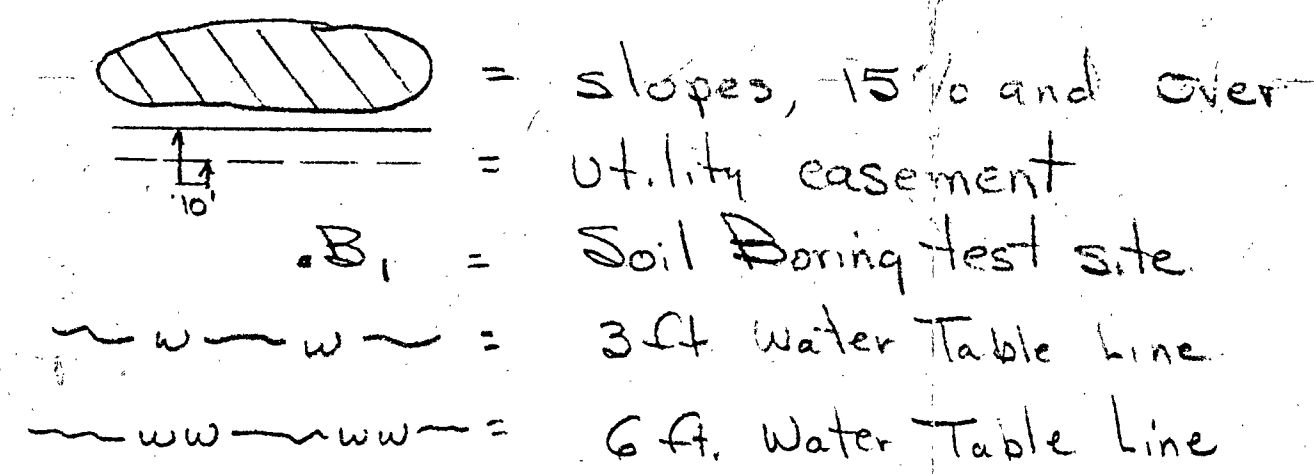 = slopes, 15% and over
= utility easement
10'
.B1 = Soil Boring test site
w w = 3 ft. Water Table Line
ww ww = 6 ft. Water Table Line